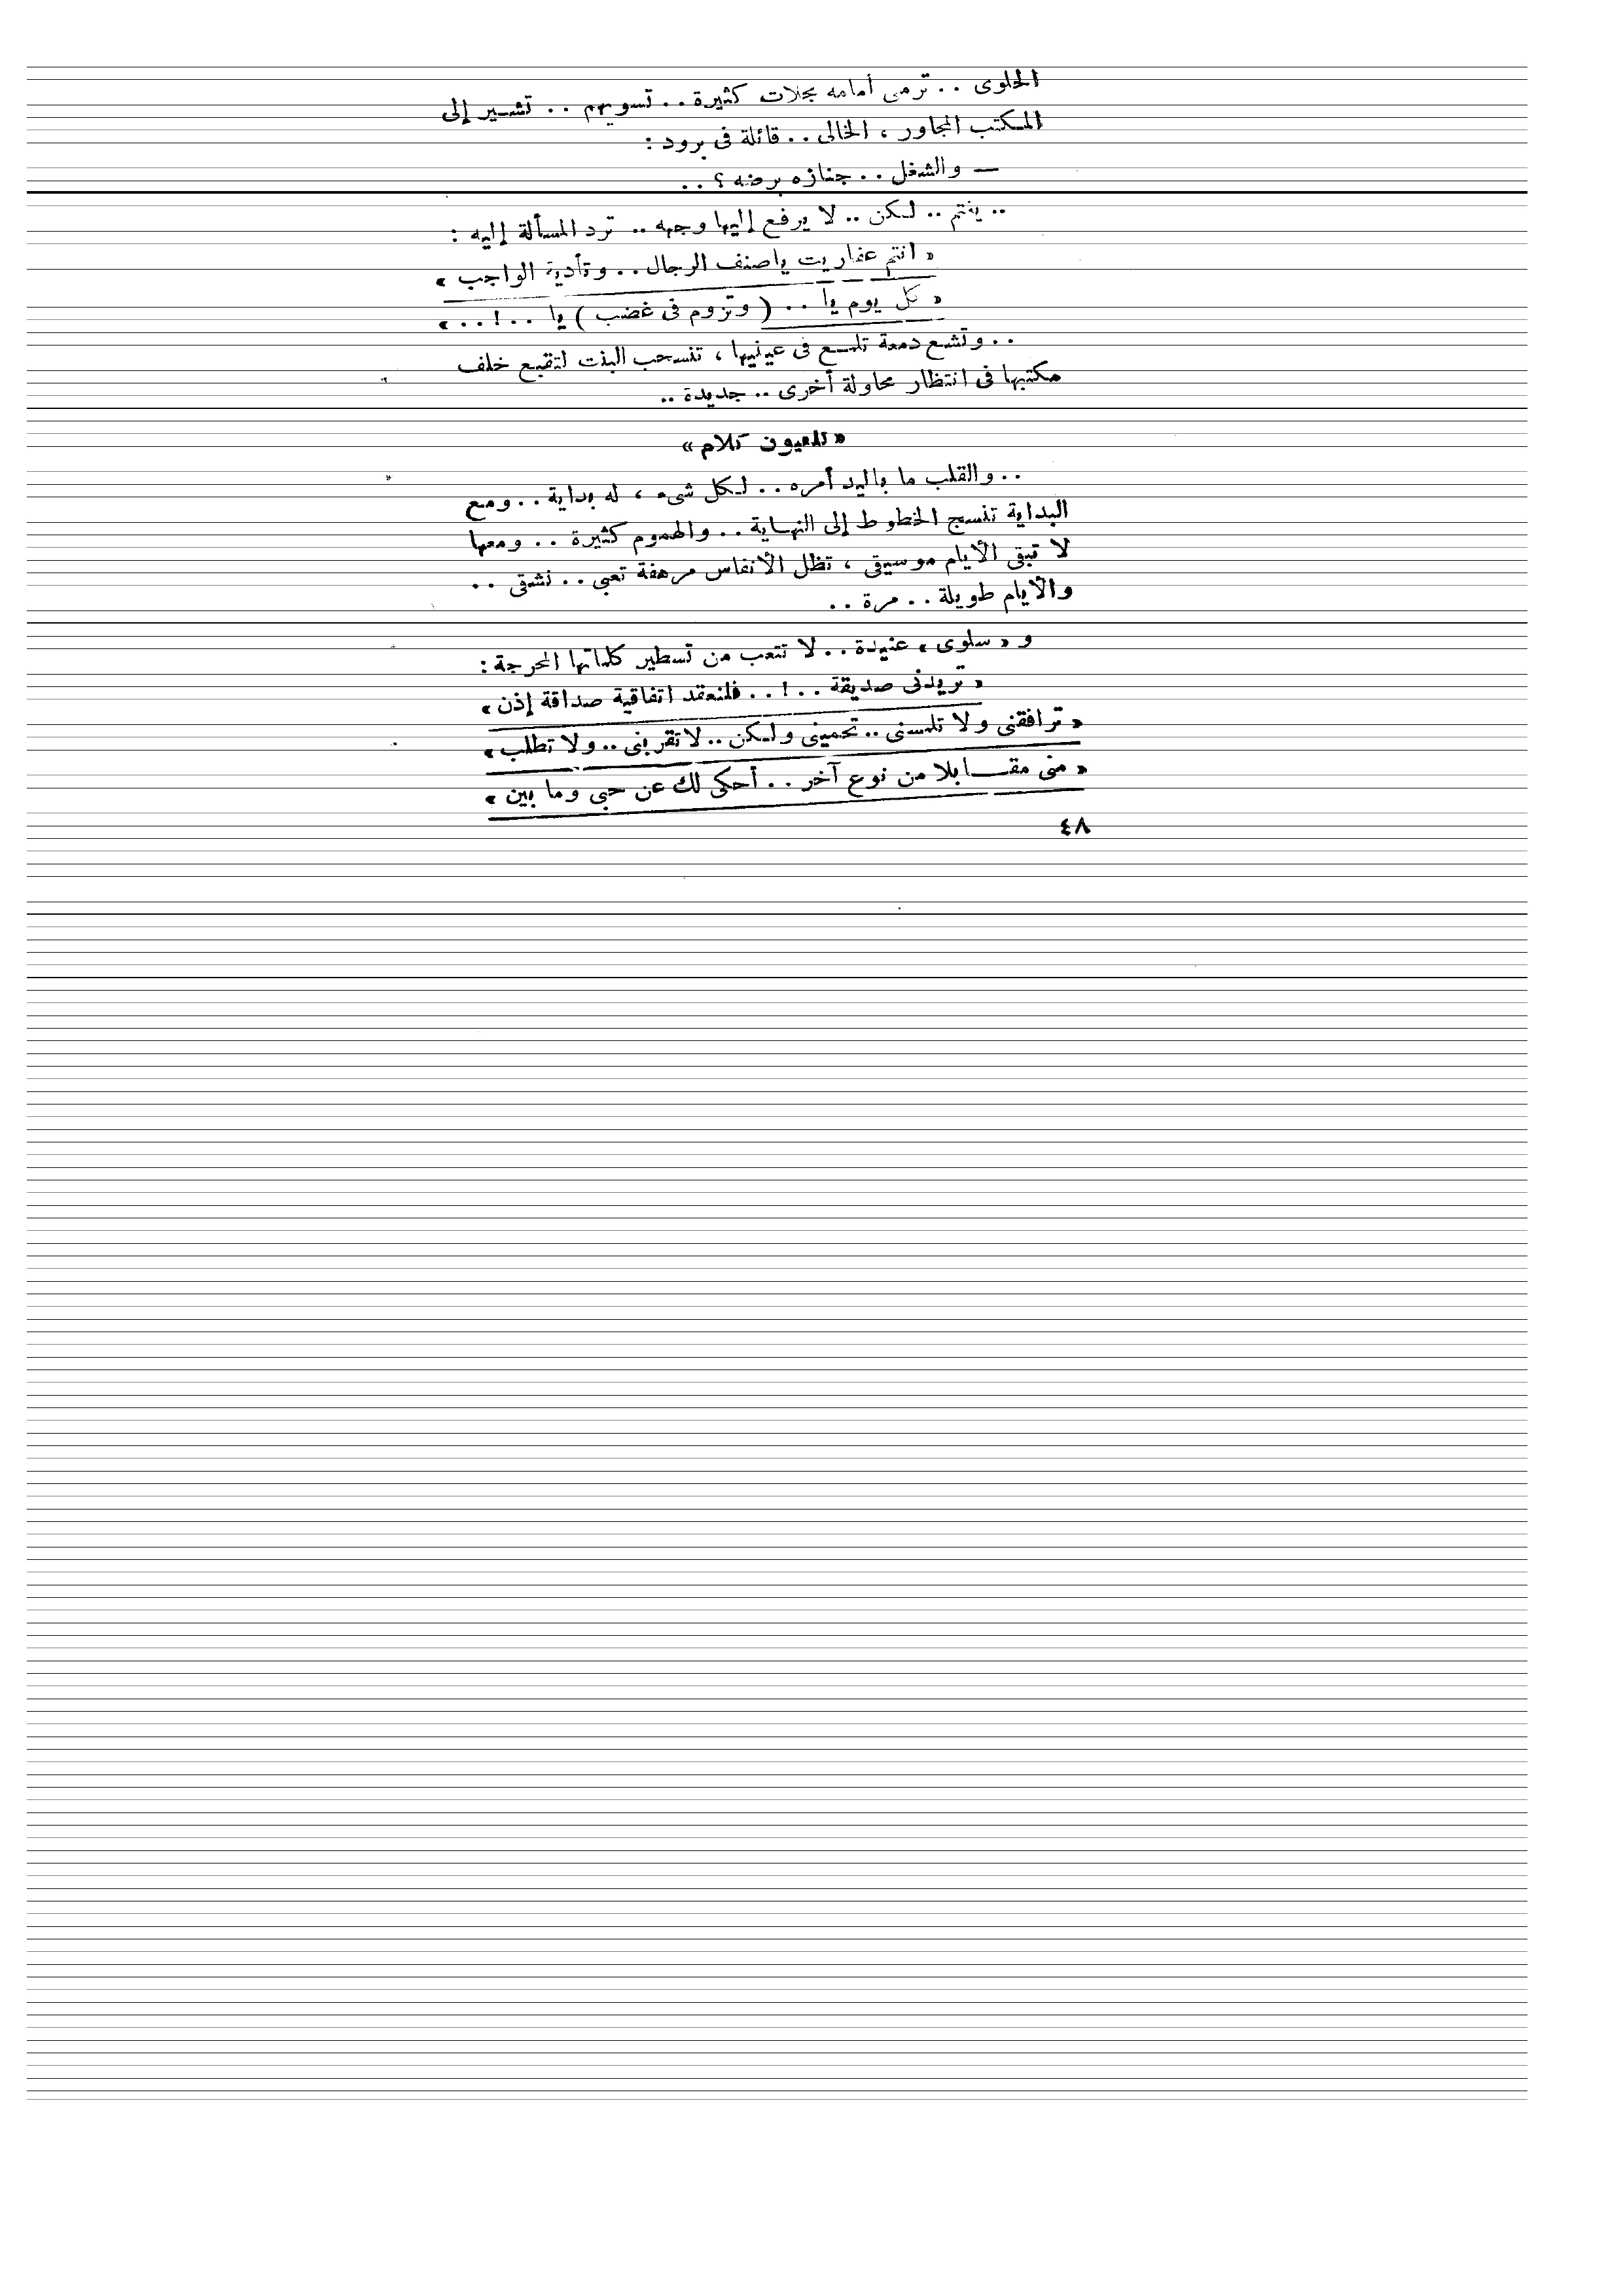 الحلوى . . ترمى أمامه بجلات كثيرة . . تسويهم . . تشير إلى
المكتب المجاور ، الخالى . . قائلة فى برود :
— والشغل . . جنازه برضه ؟ . .
. . يغتم . . لكن . . لا يرفع إليها وجهه . . ترد المسألة إليه :
« انتم عفاريت ياصنف الرجال . . وتأدية الواجب »
« كل يوم يا . . ( وتزوم فى غضب ) يا . . ! . . »
. . وتشع دمعة تلسع فى عينيها ، تنسحب البنت لتقبع خلف
مكتبها فى انتظار محاولة أخرى . . جديدة . .
« للعيون كلام »
. . والقلب ما باليد أمره . . لكل شىء ، له بداية . . ومع
البداية تنسج الخطوط إلى النهاية . . والهموم كثيرة . . ومعها
لا تبقى الأيام موسيقى ، تظل الأنفاس مرهفة تعبى . . نشقى . .
والأيام طويلة . . مرة . .
و « سلوى » عنيدة . . لا تتعب من تسطير كلماتها المحرجة :
« تريدنى صديقة . . ! . . فلنعقد اتفاقية صداقة إذن »
« ترافقنى ولا تلمسنى . . تحمينى ولكن . . لا تقربنى . . ولا تطلب »
« منى مقابلا من نوع آخر . . أحكى لك عن حبى وما بين »
٤٨